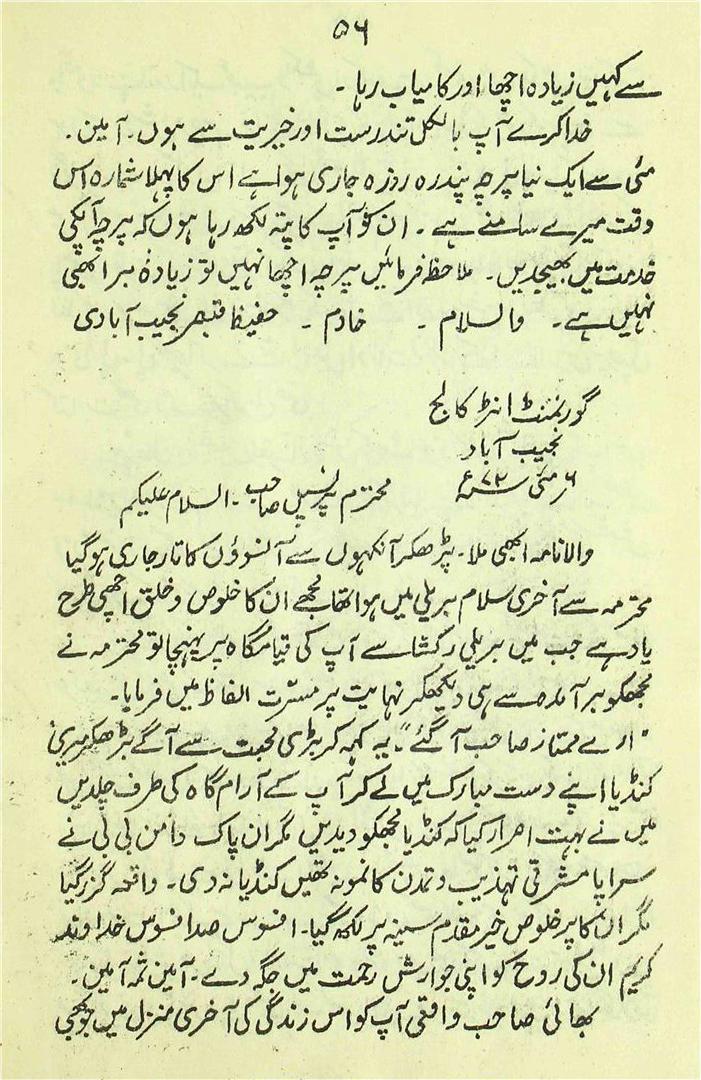 ۵۶
سے کہیں زیادہ اچھا اور کامیاب رہا ۔
خدا کرے آپ بالکل تندرست اور خیریت سے ہوں ۔ آمین ۔
مئی سے ایک نیا پرچہ پندرہ روزہ جاری ہوا ہے اس کا پہلا شمارہ اس
وقت میرے سامنے ہے ۔ ان کو آپ کا پتہ لکھ رہا ہوں کہ پرچہ آپکی
خدمت میں بھیجدیں ۔ ملاحظہ فرمائیں پرچہ اچھا نہیں تو زیادہ برا بھی
نہیں ہے ۔ والسلام ۔ خادم ۔ حفیظ قیصر نجیب آبادی
گورنمنٹ انٹر کالج
نجیب آباد
۶ مئی سنہ ۷۲ء
محترم پرنسپل صاحب ۔ السلام علیکم
والا نامہ ابھی ملا ۔ پڑھکر آنکھوں سے آنسوؤں کا تار جاری ہو گیا
محترمہ سے آخری سلام بریلی میں ہوا تھا مجھے ان کا خلوص و خلق اچھی طرح
یاد ہے جب میں بریلی رکشا سے آپ کی قیامگاہ پر پہنچا تو محترمہ نے
مجھکو برآمدہ سے ہی دیکھکر نہایت پر مسرت الفاظ میں فرمایا ۔
"ارے ممتاز صاحب آ گئے" ۔ یہ کہہ کر بڑی محبت سے آگے بڑھکر میری
کنڈیا اپنے دست مبارک میں لے کر آپ کے آرام گاہ کی طرف چلدیں
میں نے بہت اصرار کیا کہ کنڈیا مجھکو دیدیں مگر ان پاک دامن بی بی نے
سراپا مشرقی تہذیب و تمدن کا نمونہ تھیں کنڈیا نہ دی ۔ واقعہ گزر گیا
مگر ان کا پر خلوص خیر مقدم سینہ پر لکھ گیا ۔ افسوس صد افسوس خداوند
کریم ان کی روح کو اپنی جوار رحمت میں جگہ دے ۔ آمین ثمہ آمین ۔
بھائی صاحب واقعی آپ کو اس زندگی کی آخری منزل میں جو بھی